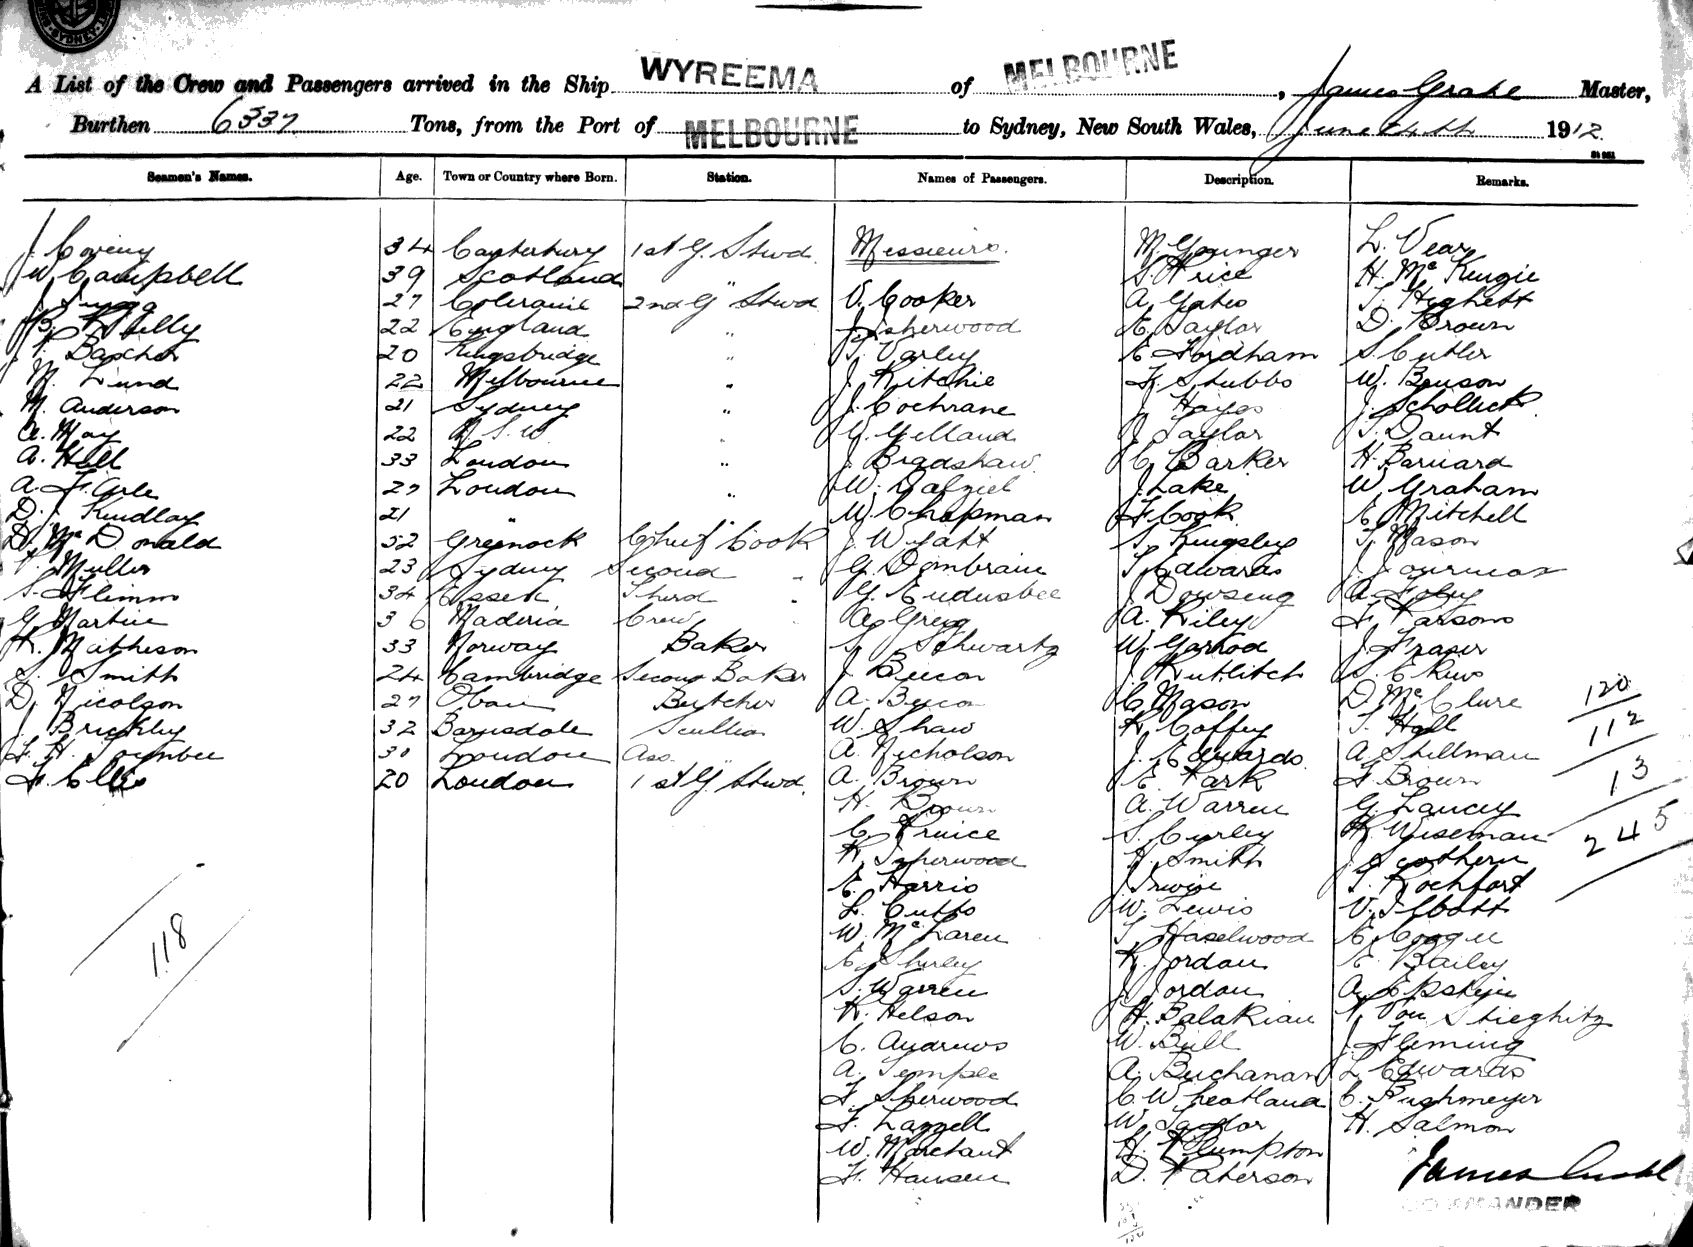 SYDNEY
A List of the Crew and Passengers arrived in the Ship WYREEMA of MELBOURNE, James Master,
Burthen 6337 Tons, from the Port of MELBOURNE to Sydney, New South Wales, June 1912
Seamen's Names. Age. Town or Country where Born. Station. Names of Passengers. Description. Remarks.
J. 34 Canterbury 1st G. Stwd. Messieurs. M. Younger L. Vear
W. Campbell 39 Scotland " S. Price H. McKenzie
J. 27 Coleraine 2nd G Stwd V. Cooker A. Yates T. Highett
22 England " J. Isherwood E. Taylor D. Brown
20 Kingsbridge " T. Varley E. Fordham S. Cutler
M. Lund 22 Melbourne " J. Ritchie F. Stubbs W. Benson
M. Anderson 21 Sydney " J. Cochrane J. Hayes J.
A. May 22 N.S.W. " G. Gelland J. Taylor T. Daunt
A. Hall 33 London " J. Bradshaw C. Barker H. Barnard
A. F. 27 London " W. Dalziel J. Lake W. Graham
D. J. Kindlay 21 " " W. Chapman F. Cook E. Mitchell
D. McDonald 52 Greenock Chief Cook J. Wyatt S. Kingsley T. Mason
Muller 23 Sydney Second " G. Dombrain T. Edwards J.
S. Flimm 34 Essex Third " G. J. Dowseng A. Foley
G. Martin 36 Maderia Crew " A. Gregg A. Riley F. Parsons
K. Matheson 33 Norway Baker S. Schwartz W. Garrod J. Fraser
S. Smith 24 Cambridge Second Baker J. Becon J. S.
D. Nicolson 27 Oban Butcher A. Becon C. Mason D. McClure 120
J. 32 Barnsdale Scullion W. Shaw K. Coffey T. Hall 112
F. H. Toumbee 30 London Ass. " A. Nicholson J. Edwards A. Shellman
F. Ellis 20 London 1st G Stwd. A. Brown E. Park F. Brown 13
H. Brown A. Warren G. Lancey
C. Prince S. Curley H. Wiseman 245
K. Isherwood H. Smith J. Scothern
E. Harris J. Irwin T. Rochfort
L. Cutts W. Lewis V. Ibbott
118 W. McLaren T. Haselwood E.
E. Shirley K. Jordan E. Bailey
S. Warren J. Jordan A. Epstein
K. Helson H. Balakian Von Stieglitz
C. Andrews W. Bull J. Fleming
A. Temple A. Buchanan L. Edwards
F. Sherwood C. Wheatland C. Bughmeyer
F. Lazzell W. Taylor H. Salmon
W. Marchant H. Plumpton
F. Hansen D. Paterson
James
COMMANDER